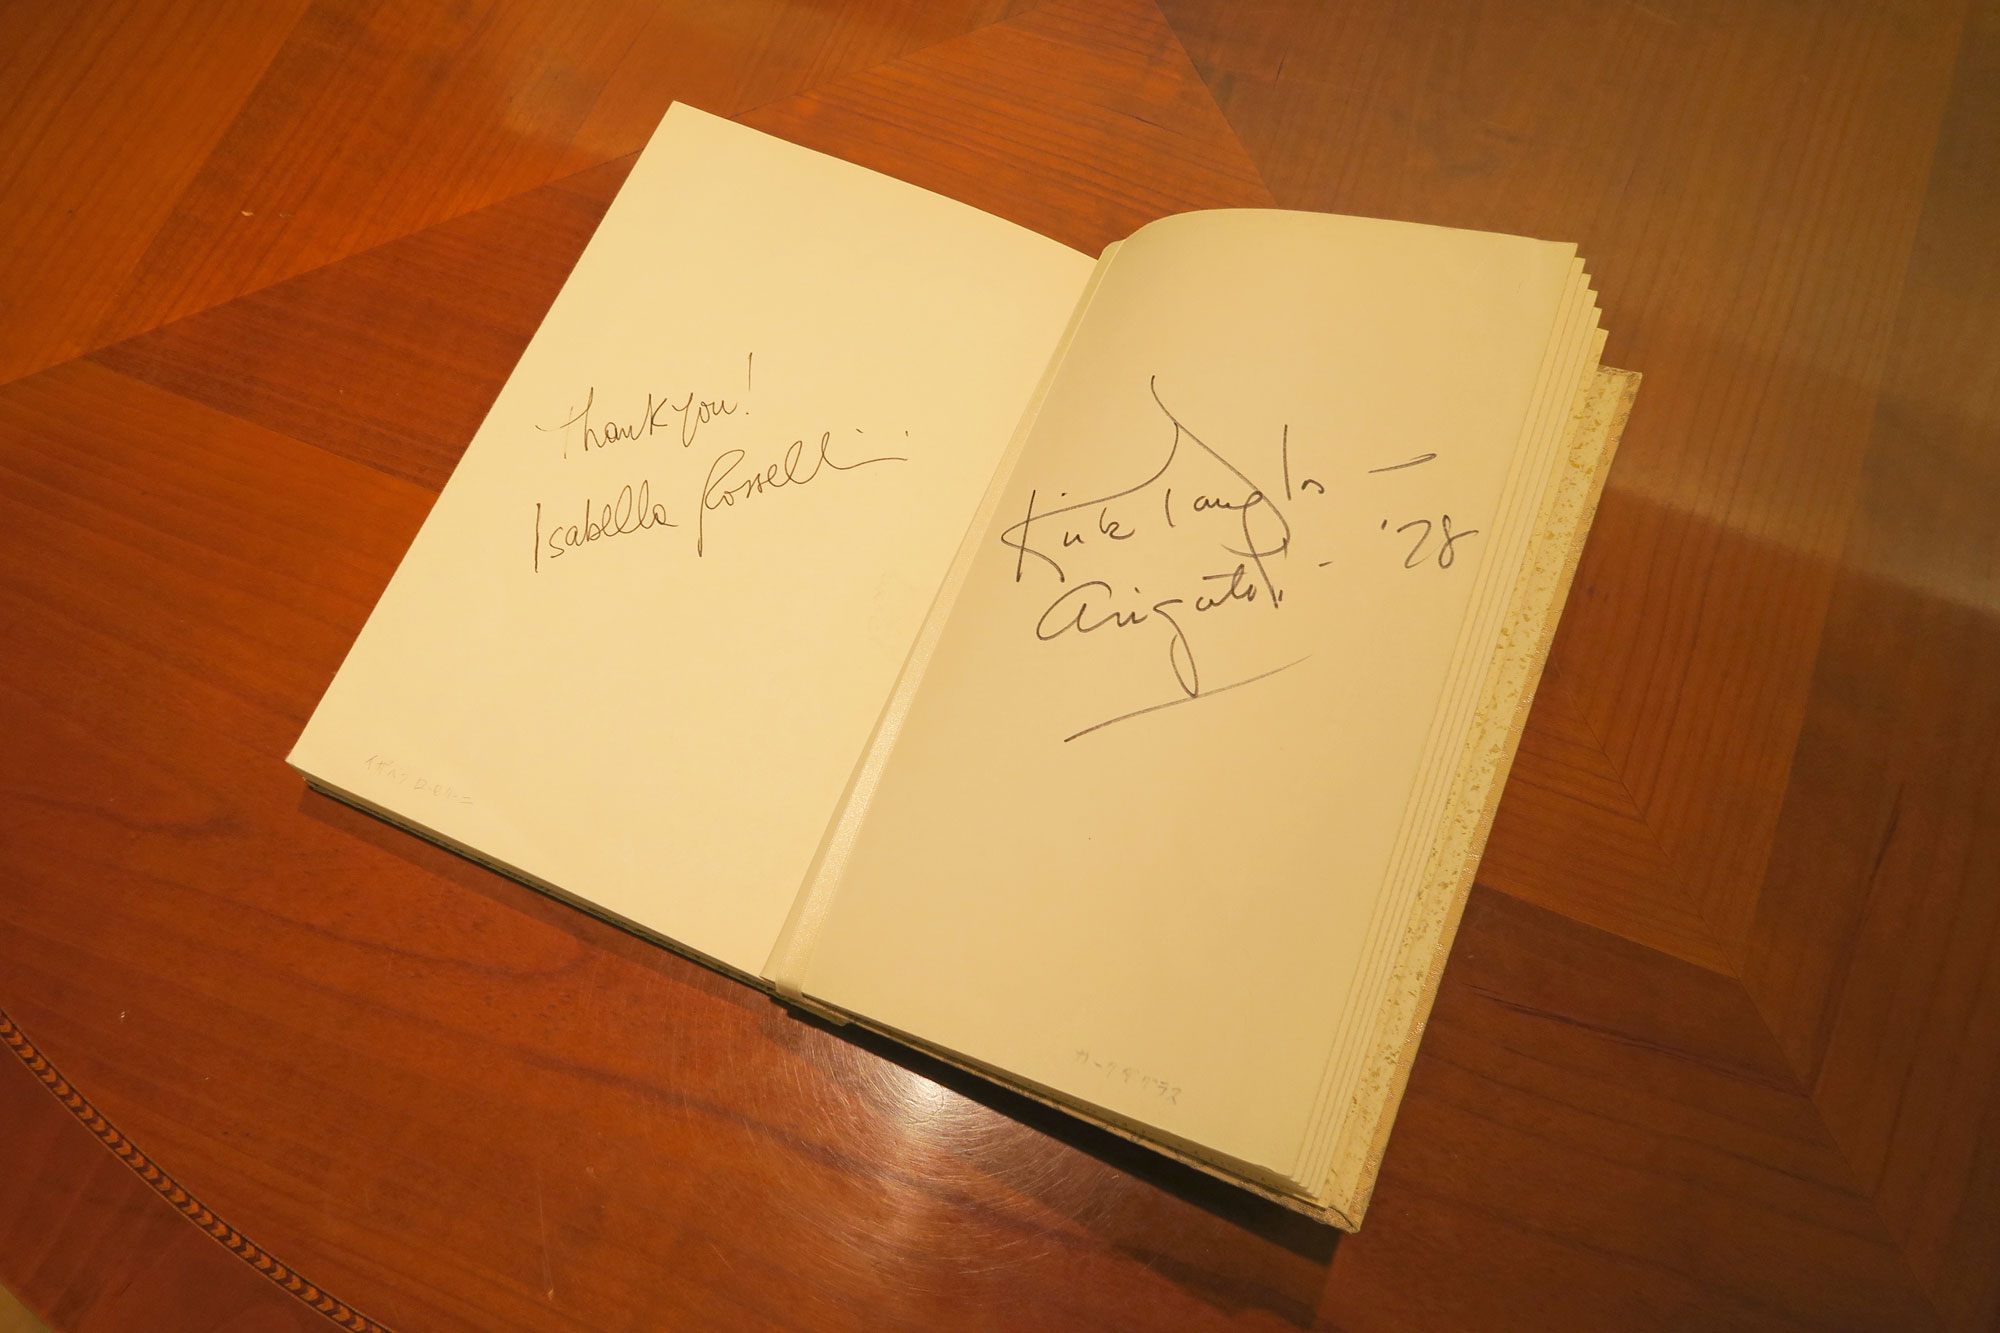 Thank you!
Isabella Rossellini
イザベラ ロッセリーニ
Kirk Douglas - '78
Arigato! -
カーク ダグラス